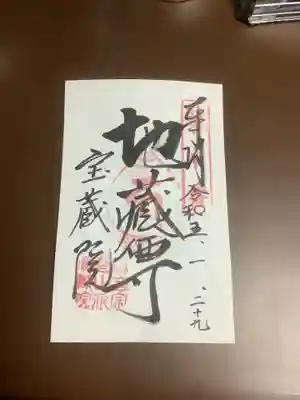 奉拝 令和五、一、二十九
地蔵尊
宝蔵院